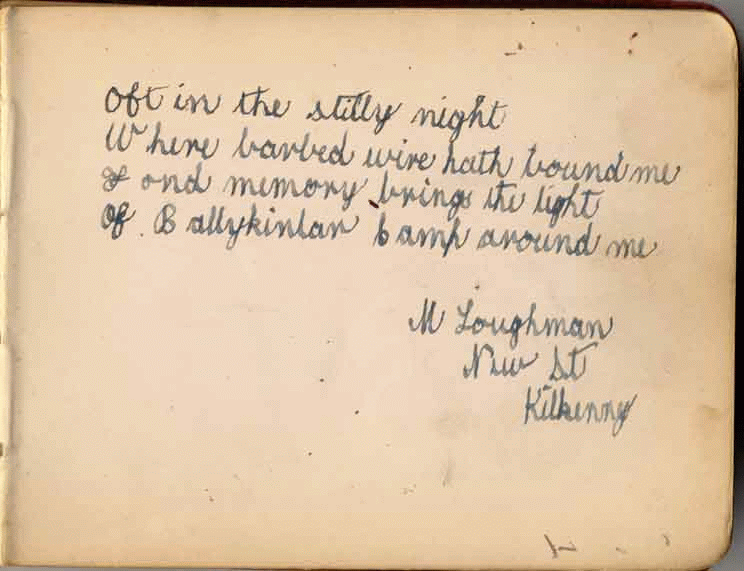 Oft in the stilly night
Where barbed wire hath bound me
Fond memory brings the light
Of Ballykinlar Camp around me
M Loughman
New St
Kilkenny